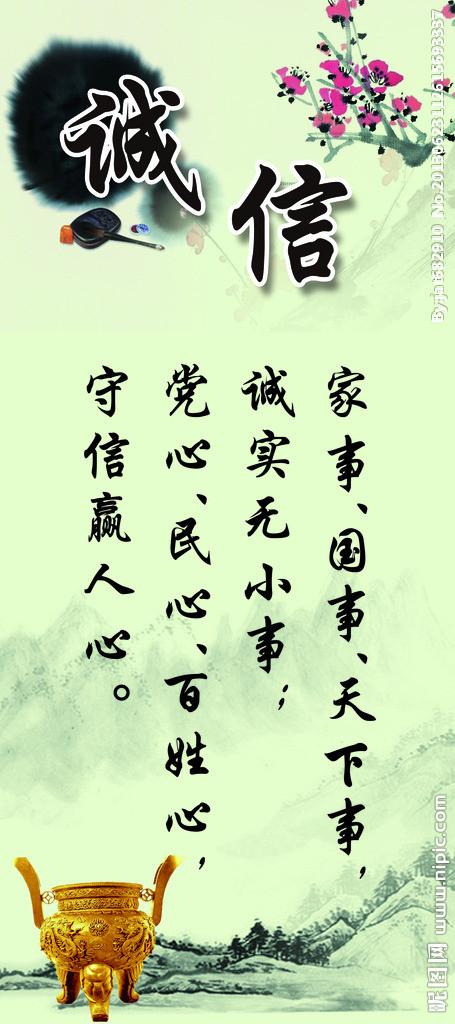 诚信
家事、国事、天下事，
诚实无小事；
党心、民心、百姓心，
守信赢人心。
By:jat582910 No.20130523111615693337
昵图网 www.nipic.com